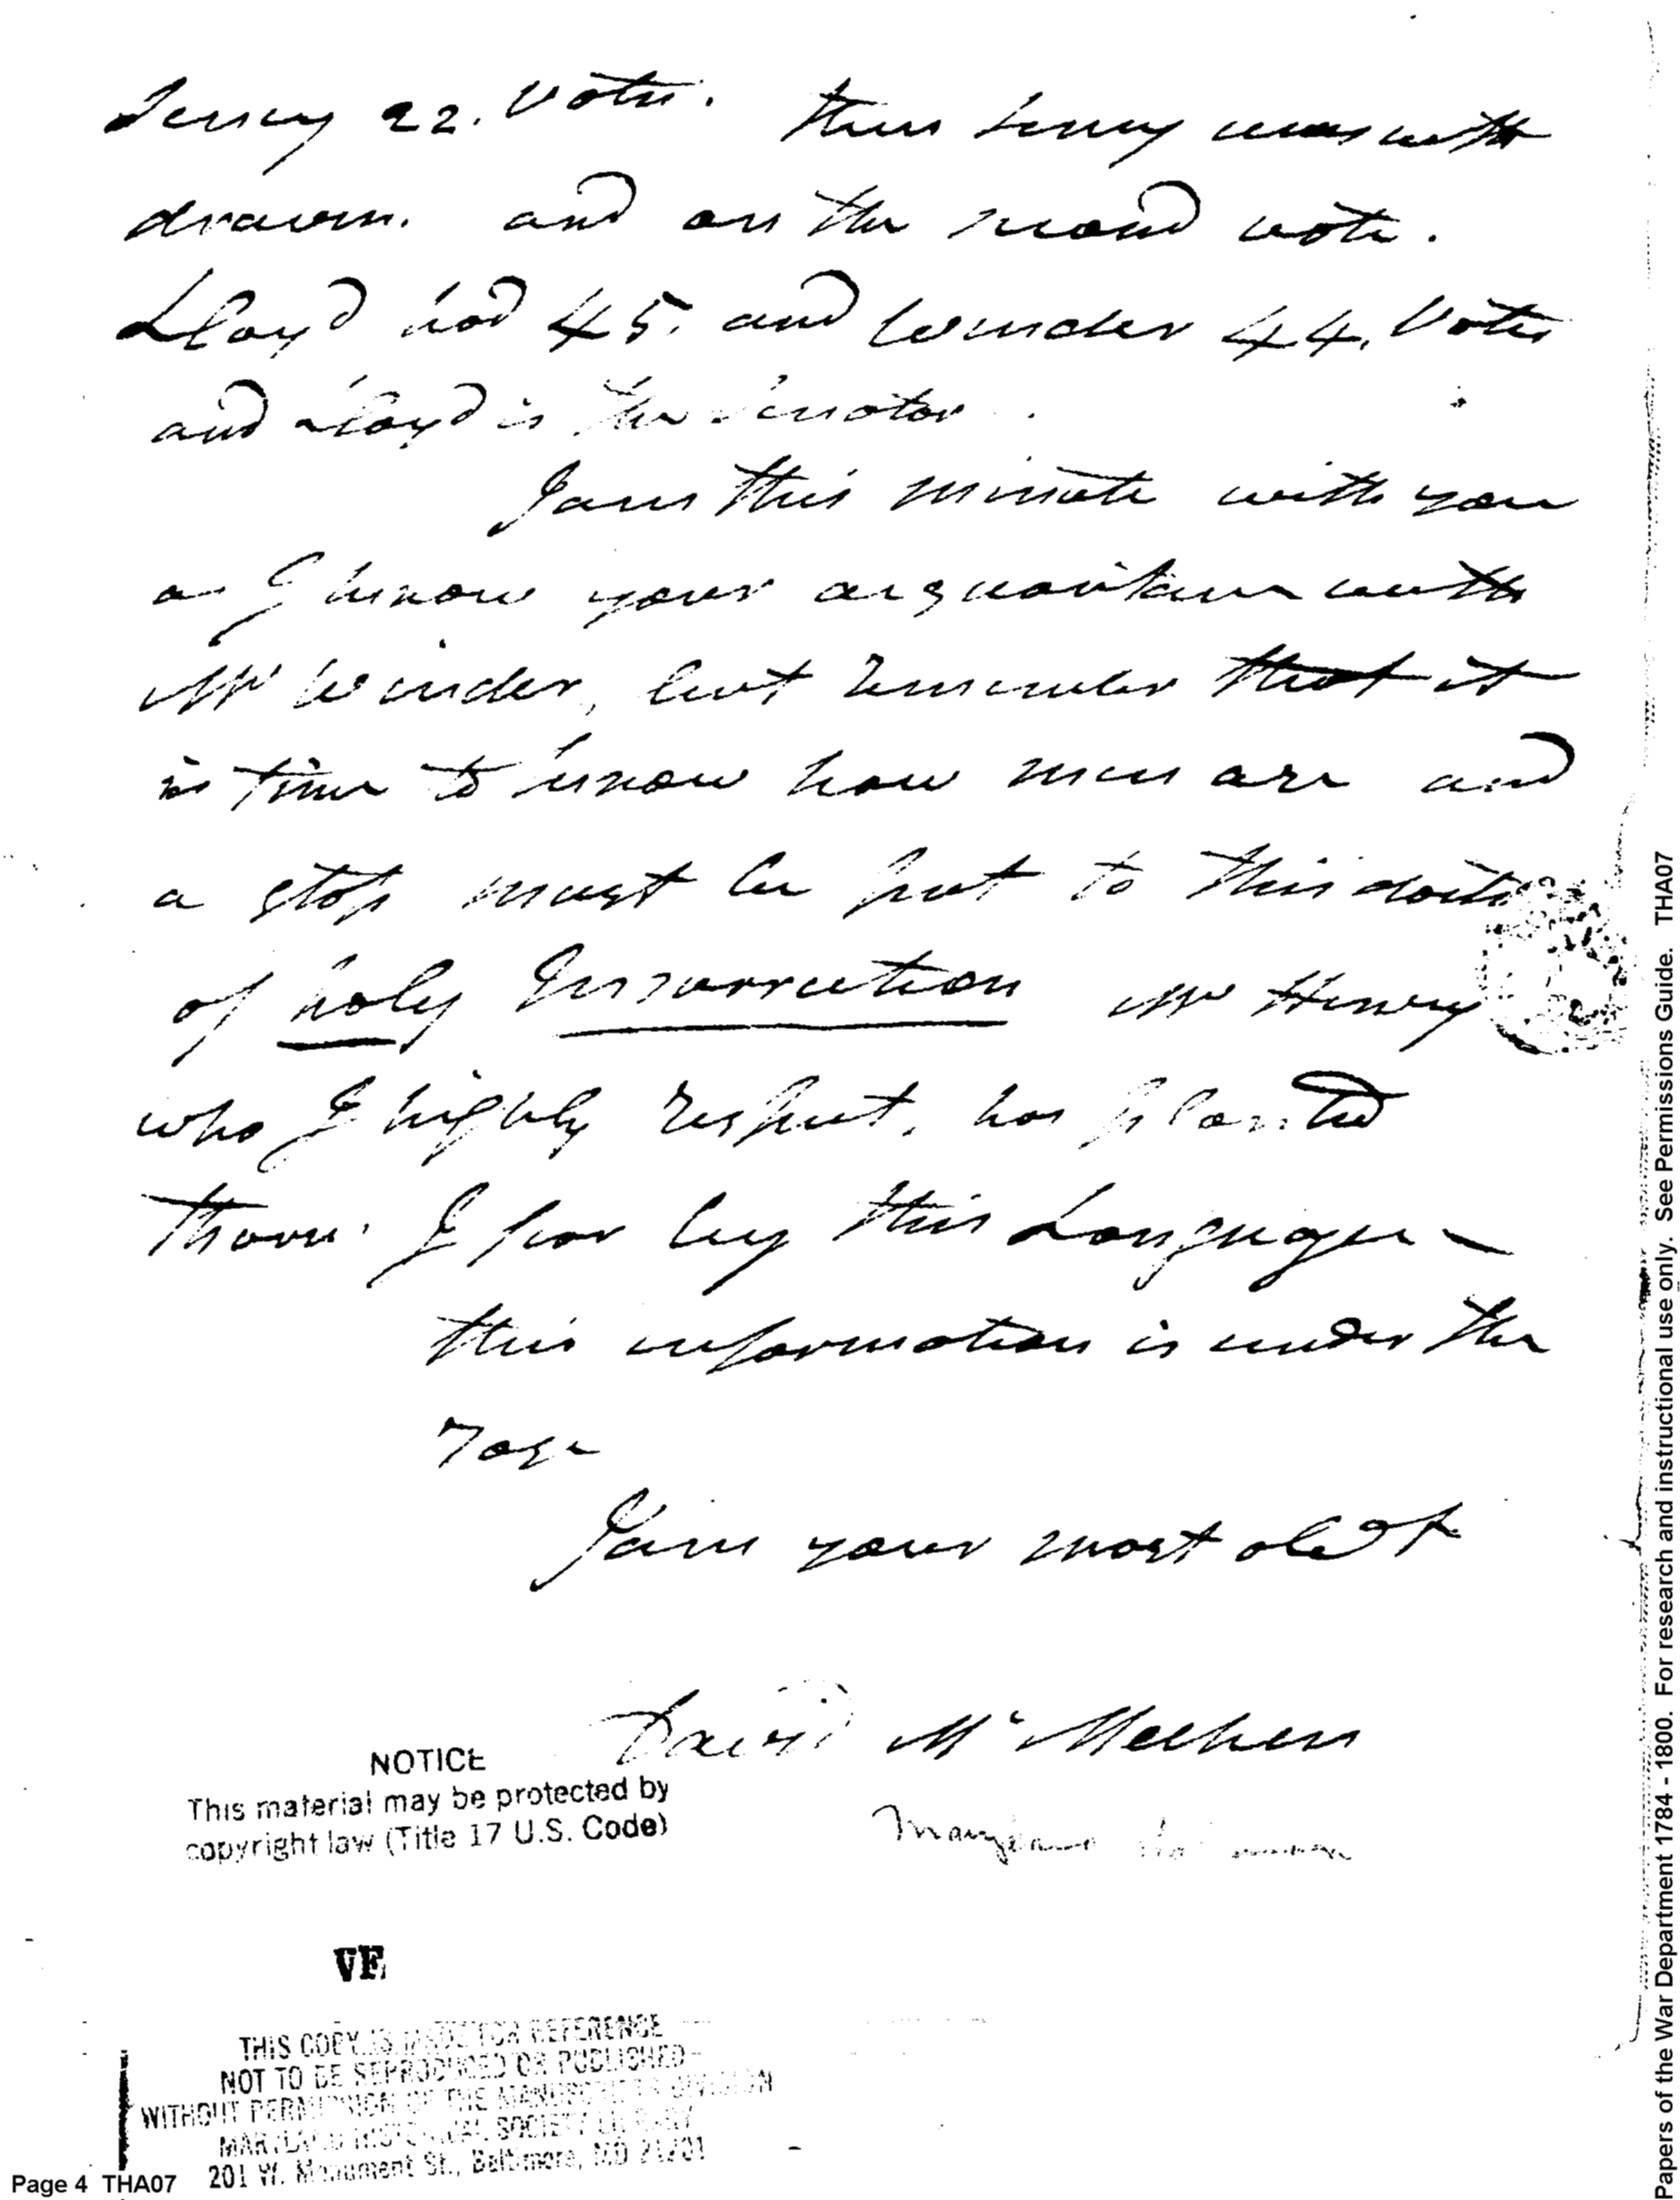 Tenney 22. Votes. then Tenney was with
drawn. and on the second vote.
Lloyd had 45. and Winder 44. Votes
and Lloyd is the Senator.
I am this minute with you
as I know your acquaintance with
Mr Winder, but remember that it
is time to know how men are and
a stop must be put to this
of holy Insurrection Mr Henry
who I highly respect, has planted
Thorns. I fear by this Language –
this information is under the
Rose
I am your most obedt
David McMechen
Maryland
NOTICE
This material may be protected by
copyright law (Title 17 U.S. Code)
VF
THIS COPY IS MADE FOR REFERENCE
NOT TO BE REPRODUCED OR PUBLISHED
WITHOUT PERMISSION OF THE MANUSCRIPTS DIVISION
MARYLAND HISTORICAL SOCIETY LIBRARY
201 W. Monument St., Baltimore, MD 21201
Page 4 THA07
Papers of the War Department 1784 - 1800. For research and instructional use only. See Permissions Guide. THA07